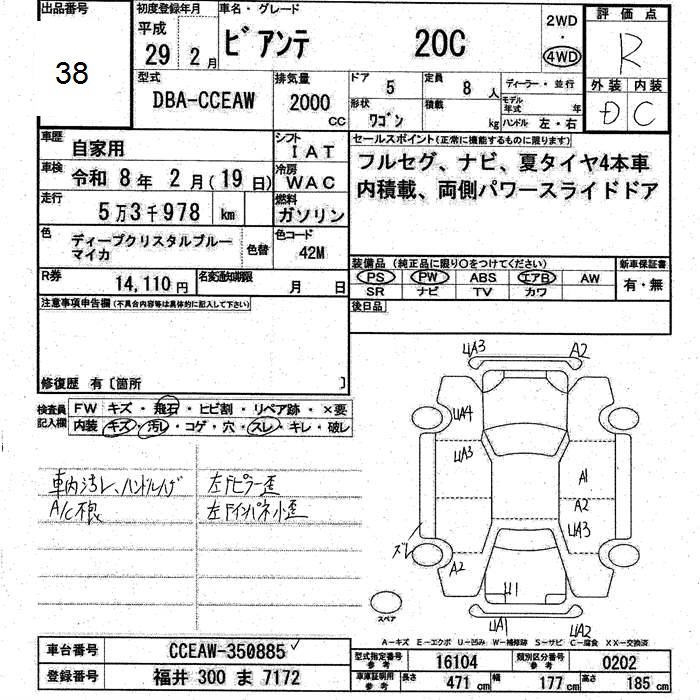 出品番号
38
初度登録年月
平成
29 2 月
車名・グレード
ビアンテ 20C
2WD
4WD
評価点
R
外装 内装
D C
型式
DBA-CCEAW
排気量
2000
CC
ドア 5
定員 8 人
ディーラー・並行
形状 ワゴン
積載 kg
モデル年式 年
ハンドル 左・右
車歴 自家用
シフト IAT
車検 令和 8年 2月(19日)
冷房 WAC
走行 5万3千978 km
燃料 ガソリン
色 ディープクリスタルブルーマイカ
色替
色コード 42M
R券 14,110円
名変通知期限 月 日
セールスポイント(正常に機能するものに限ります)
フルセグ、ナビ、夏タイヤ4本車
内積載、両側パワースライドドア
装備品(純正品に限り○をつけてください)
新車保証書
PS PW ABS エアB AW
有・無
SR ナビ TV カワ
後日品
注意事項申告欄(不具合内容等は具体的に記入して下さい)
修復歴 有〔箇所 〕
検査員記入欄
FW キズ・飛石・ヒビ割・リペア跡・×要
内装 キズ・汚レ・コゲ・穴・スレ・キレ・破レ
車内汚レ、ハンドルハゲ
A/C不良
左Fピラー歪
左Fインパネ小歪
UA3
A2
UA4
UA3
A1
A2
UA3
ズレ
A2
U1
UA1
UA2
スペア
A－キズ E－エクボ U－凹み W－補修跡 S－サビ C－腐食 XX－交換済
車台番号 CCEAW-350885
登録番号 福井 300 ま 7172
型式指定番号参考 16104
類別区分番号参考 0202
車庫証明用参考
長さ 471 cm
幅 177 cm
高さ 185 cm